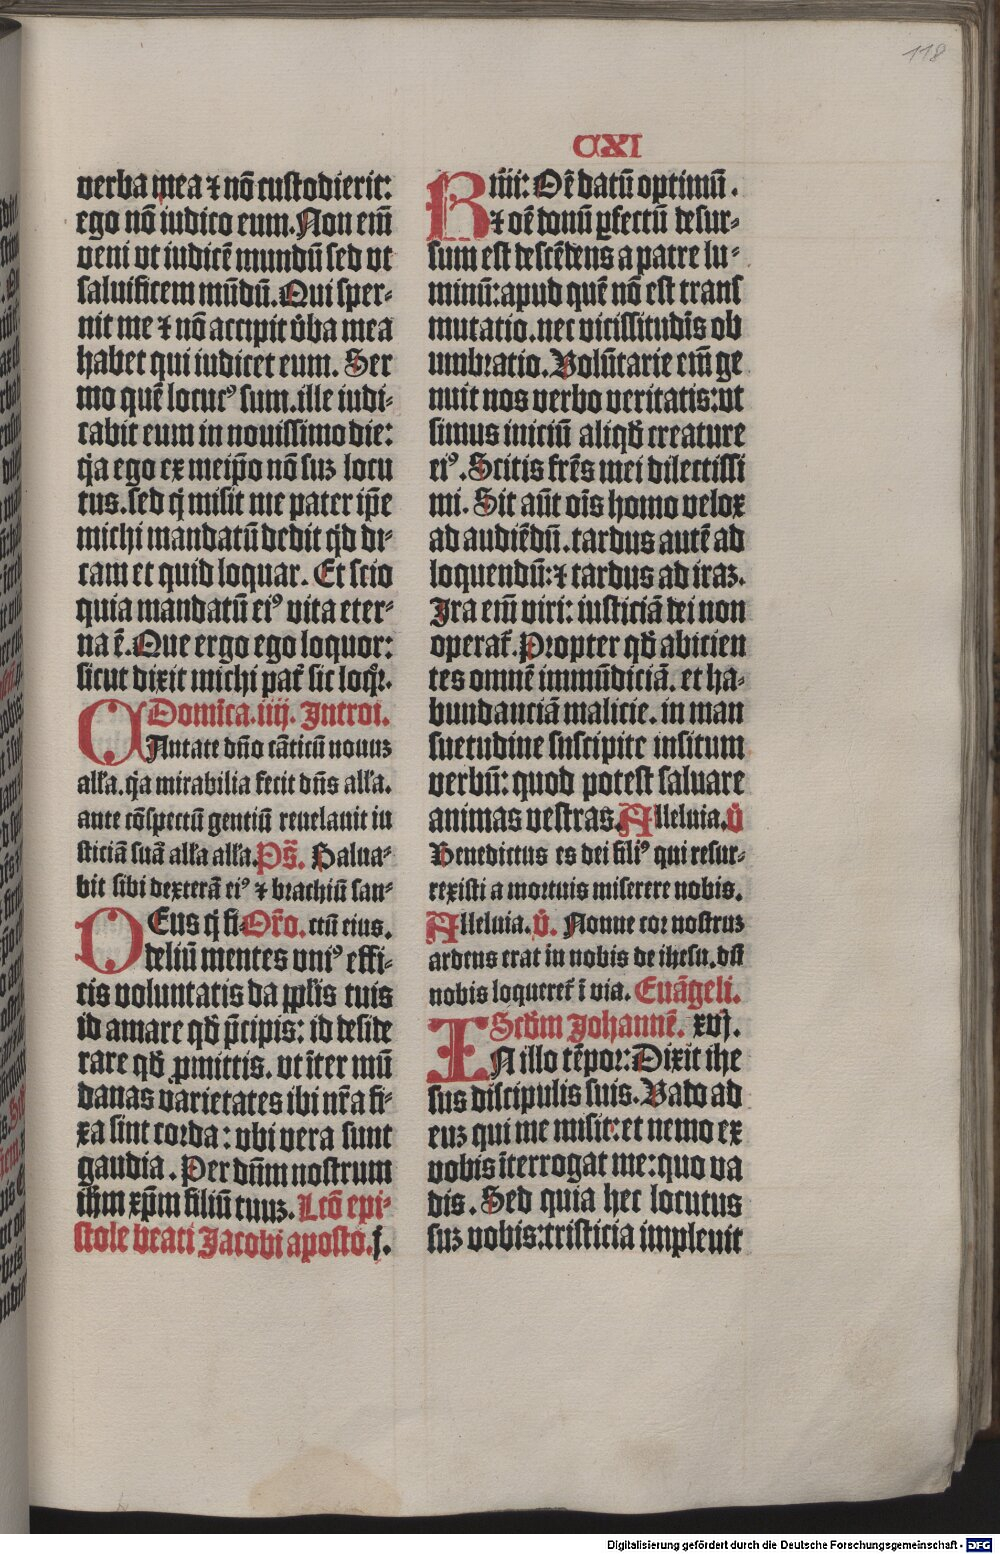 118
CXI
verba mea ⁊ nō custodierit:
ego nō iudico eum. Non em̄
veni vt iudicē mundū sed vt
saluificem mūdū. Qui sper⸗
nit me ⁊ nō accipit v̄ba mea
habet qui iudicet eum. Ser
mo quē locutꝰ sum. ille iudi⸗
cabit eum in nouissimo die:
q̄a ego ex meip̄o nō suꝫ locu
tus. sed q̄ misit me pater ip̄e
michi mandatū dedit qd̄ di⸗
cam et quid loquar. Et scio
quia mandatū eiꝰ vita eter⸗
na ē. Que ergo ego loquor:
sicut dixit michi pat̄ sic loqr̄.
Domīca. iiij. Introi.
CAntate dn̄o cāticū nouuꝫ
all'a. q̄a mirabilia fecit dn̄s all'a.
ante cōspectū gentiū reuelauit iu
sticiā suā all'a all'a. Ps̄. Salua⸗
bit sibi dexterā eiꝰ ⁊ brachiū san⸗
DEus q̄ fi⸗ Or̄o. ctū eius.
deliū mentes vniꝰ effi⸗
cis voluntatis da pp̄lis tuis
id amare qd̄ p̄cipis: id deside
rare qd̄ ꝓmittis. vt īter mū
danas varietates ibi nr̄a fi⸗
xa sint corda: vbi vera sunt
gaudia. Per dn̄m nostrum
ih̄m xp̄m filiū tuuꝫ. Lcō epi⸗
stole beati Jacobi aposto. j.
Rm̄i: Oē datū optimū.
⁊ oē donū ꝑfectū desur⸗
sum est descēdens a patre lu⸗
minū: apud quē nō est trans
mutatio. nec vicissitudīs ob
umbratio. Volūtarie em̄ ge
nuit nos verbo veritatis: vt
simus iniciū aliqd̄ creature
eiꝰ. Scitis fr̄es mei dilectissi
mi. Sit aūt oīs homo velox
ad audiēdū. tardus autē ad
loquendū: ⁊ tardus ad iraꝫ.
Jra em̄ viri: iusticiā dei non
operat̄. Propter qd̄ abicien
tes omnē immūdiciā. et ha⸗
bundanciā malicie. in man
suetudine suscipite insitum
verbū: quod potest saluare
animas vestras. Alleluia. v̄
Benedictus es dei filiꝰ qui resur⸗
rexisti a mortuis miserere nobis.
Alleluia. v̄. Nonne cor nostruꝫ
ardens erat in nobis de ihesu. dū
nobis loqueret̄ ī via. Euāgeli.
Scd̄m Johannē. xvj.
IN illo tēpor: Dixit ihe
sus discipulis suis. Vado ad
euꝫ qui me misit: et nemo ex
vobis īterrogat me: quo va
dis. Sed quia hec locutus
suꝫ vobis: tristicia impleuit
Digitalisierung gefördert durch die Deutsche Forschungsgemeinschaft - DFG